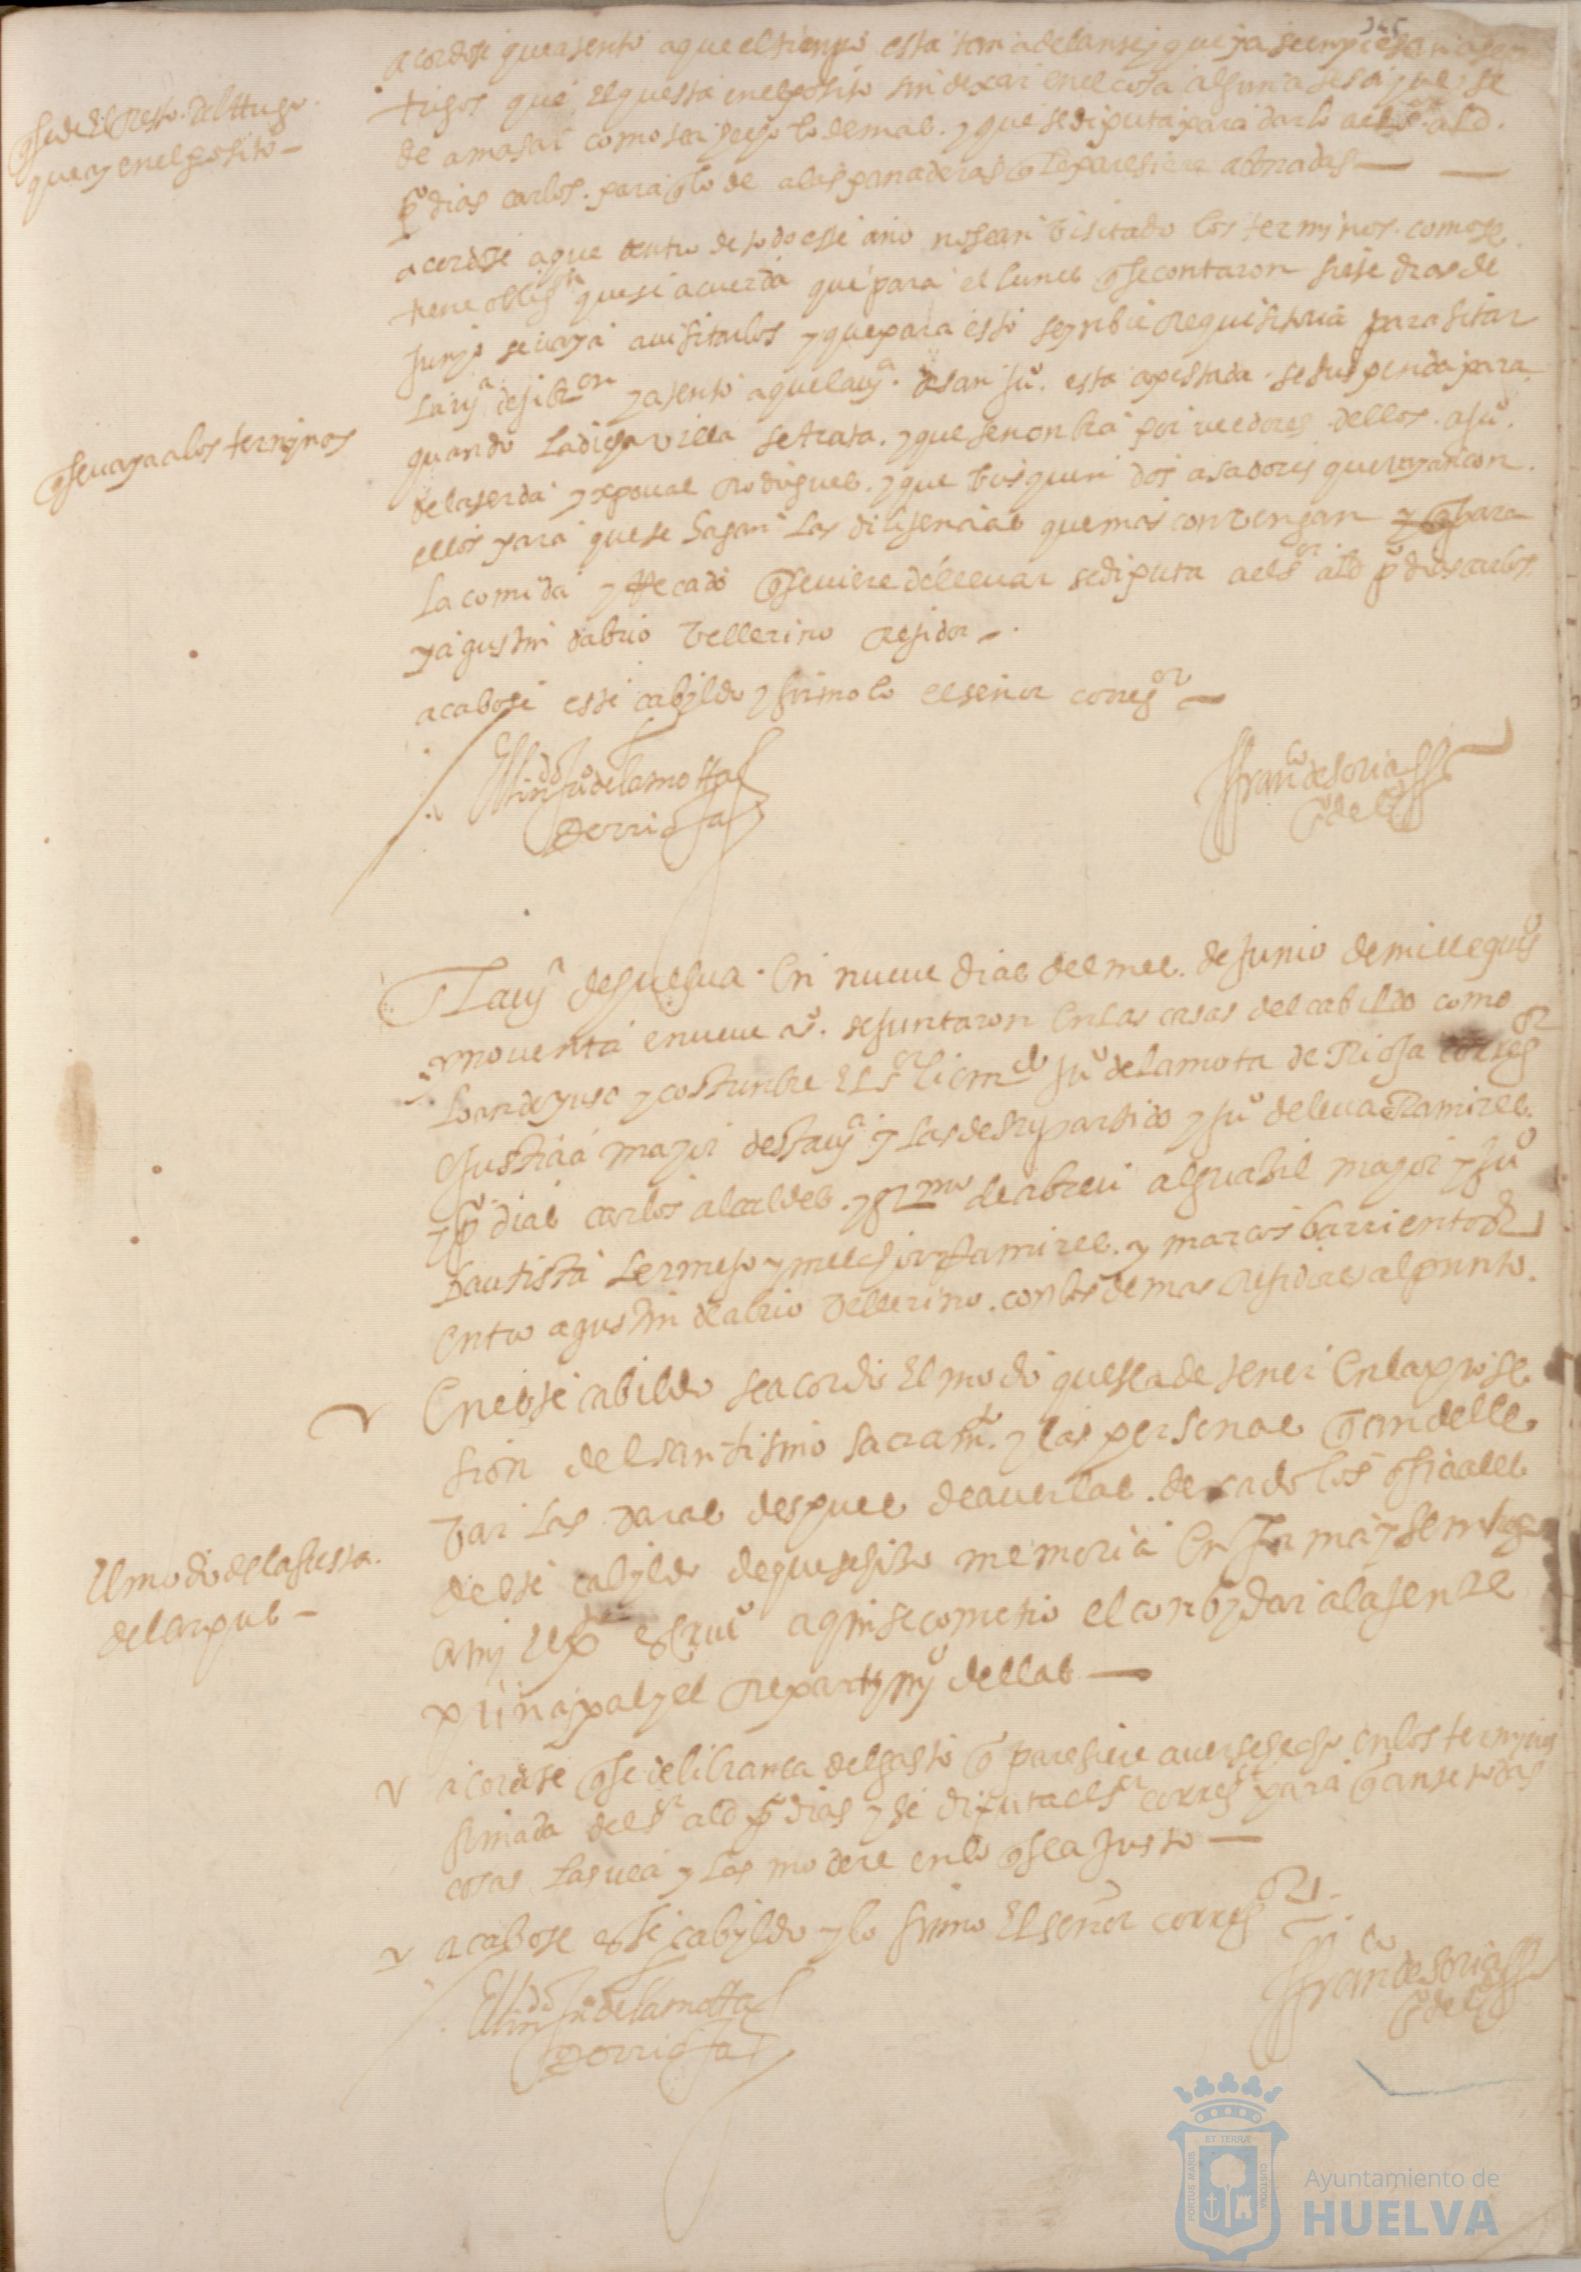 acordose que atento a que el tienpo esta tan adelante y que ya se enpiesan a
trigos que el questa en el posito sin dexar en el cosa alguna se saque y se
de amasar como se a hecho lo demas. y que se diputa para darlo a el sr. alld.
po dias carlos. para q lo de a las panaderas q le paresiere abonadas —
qse de el resto. del trigo
que ay en el posito —
acordose a que dentro de todo este año no se an visitado los terminos. como se
tiene obligon que se acuerda que para el lunes q se contaron siete dias de
junyo se vaya a visitarlos y que para esto se ynbie requisitoria para sitar
la va de jibron y atento a que la va. de san juo. esta apestada. se suspenda para
quando la dicha villa se trata. y que se nonbra por veedores dellos. a juo.
de la serda y xpoual rodrigues. y que busquen dos asadores que vayan con.
ellos para que se hagan las diligencias que mas convengan y q para
la comida y recado q se viere de llevar se diputa a el sr alld po dias carlos.
y agustin dabrio vellerino rejidor —.
qse vaya a los termynos
acabose este cabyldo y firmolo el señor corregor —
El lindo juo de la motta
de rrioja
Franco de soria
so de co
En la va de guelva. en nueve dias del mes. de junio de mill e quis
y noventa e nueve as. se juntaron en las casas del cabildo como
lo an de uso y costunbre El sr licendo juo de la mota de Rioja corregor
e justicia mayor desta va y las de su partido y juo de leua Ramires.
y po dias carlos alcaldes. y grmo de abreu alguasil mayor y juo
bautista bermejo y melchior Ramires. y marcos barrientos
entro agustin de abrio vellerino. con los demas rejidores al punto.
En este cabildo se acordo El modo que se a de tener en la prose
sion del santisimo sacramto. y las personas q an de lle
var las varas despues de averlas. dexado los ofisiales
de este cabyldo de que se hiso memoria en forma y se entrego
a my el pe escrivo a quin se cometio el conbydar a la jente
prinsipal y el repartymyo dellas —
El modo de la fiesta.
del corpus —
acordose q se de libranca del gasto q paresiere averse hecho en los termynos
firmada del sr alld po dias y se diputa el sr corregor para q ante todas
cosas las vea y las modere en lo q sea justo —
acabose este cabyldo y lo firmo El señor corregor
El lindo juo de la motta
de rrioja
Franco de soria
so de co
PORTUS MARIS
ET TERRÆ
CUSTODIA
Ayuntamiento de
HUELVA